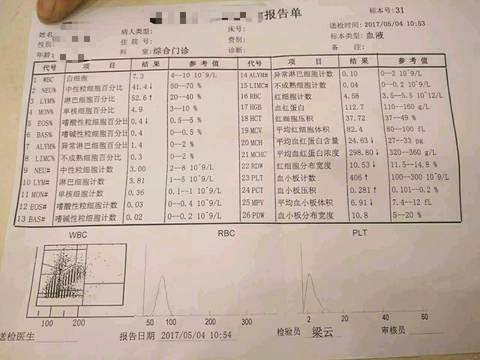 报告单
标本号:31
姓名
病人类型:
床号:
送检时间:2017/05/04 10:53
性别
住院号:
费别:
标本类型:血液
年龄
科室:综合门诊
诊断:
备注:
代号 项目 结果 参考值 代号 项目 结果 参考值
1 WBC 白细胞 7.3 4--10 10^9/L 14 ALYM# 异常淋巴细胞计数 0.10 0--2 10^9/L
2 NEU% 中性粒细胞百分比 41.4↓ 50--70 % 15 LIMC# 不成熟细胞计数 0.04 0--0.2 10^9/L
3 LYM% 淋巴细胞百分比 52.6↑ 20--40 % 16 RBC 红细胞计数 4.58 3.5--5.5 10^12/L
4 MON% 单核细胞百分比 4.9 3--10 % 17 HGB 血红蛋白 112.7 110--160 g/L
5 EOS% 嗜酸性粒细胞百分比 0.4↓ 0.5--5 % 18 HCT 红细胞压积 37.72 37--49 %
6 BAS% 嗜碱性粒细胞百分比 0.4 0--0.5 % 19 MCV 平均红细胞体积 82.4 80--100 fL
7 ALYM% 异常淋巴细胞百分比 1.4 0--2 % 20 MCH 平均血红蛋白含量 24.63↓ 27--33 pg
8 LIMC% 不成熟细胞百分比 0.3 0--2 % 21 MCHC 平均血红蛋白浓度 298.80↓ 320--360 g/L
9 NEU# 中性粒细胞计数 3.00 2--8 10^9/L 22 RDW 红细胞分布宽度 10.53↓ 11.5--14.8 %
10 LYM# 淋巴细胞计数 3.81 1--5 10^9/L 23 PLT 血小板计数 406↑ 100--300 10^9/L
11 MON# 单核细胞计数 0.36 0.1--1 10^9/L 24 PCT 血小板压积 0.281↑ 0.101--0.2 %
12 EOS# 嗜酸性粒细胞计数 0.03 0--0.4 10^9/L 25 MPV 平均血小板体积 6.91↓ 7.4--12 fL
13 BAS# 嗜碱性粒细胞计数 0.02 0--0.1 10^9/L 26 PDW 血小板分布宽度 10.8 5--20 %
WBC RBC PLT
100 200 300
50 100 150 200
2 20 40 60
送检医生 报告日期 2017/05/04 10:54 检验员 梁云 审核员